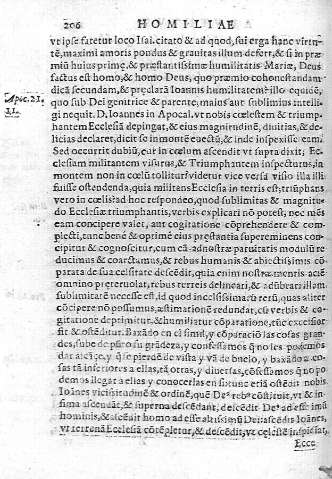 206 HOMILIAE
vt ipse fatetur loco Isai. citato & ad quod, sui erga hanc virtutē, maximi amoris pondus & grauitas illum defert, & si in præmiū huius primę, & præstantissimæ humilitatis Mariæ, Deus
factus est homo, & homo Deus, quo præmio cohonestandam
dicā secundam, & pręclarā Ioannis humilitatem? illo equidē,
quo sub Dei genitrice & parente, maius aut sublimius intelligi nequit. D. Ioannes in Apocal. vt nobis cœlestem & triumphantem Ecclesiā depingat, & eius magnitudinē, diuitias, & delicias declaret, dicit se in montē euectū, & inde inspexisse eam.
Apoc. 21.
21.
Sed occurrit dubiū, cur in cœlum ascēdit vt supra dixit; Ecclesiam militantem visurus, & Triumphantem inspecturus, in
montem non in cœlū tollitur? videtur vice versa visio illa illi
fuisse ostendenda, quia militans Ecclesia in terris est; triumphās
vero in cœlis: ad hoc respondeo, quod sublimitas & magnitudo Ecclesiæ triumphantis, verbis explicari nō potest, nec mēs
eam concipere valet, aut cogitatione cōprehendere & complecti, tunc benè & optimè eius pręstantia supereminens concipitur & cognoscitur, cum cā ad nostræ paruitatis modulū reducimus & coarctamus, & rebus humanis & abiectissimis cōparata de sua celsitate descēdit, quia enim nostræ mentis aciē
omnino pręteruolat, rebus terrenis delineari, & adūbrari illam
sublimitatē necesse est, id quod in celsissimarū rerū, quas aliter
cōcipere nō possumus, æstimatione redundat, cū verbis & cogitatione deprimitur, & humiliatur cōparatione, tūc excelsior
fit & ostēditur. Baxādo en el simil, y cōparaciō las cosas grandes, sube de pūto su grādeza, y confessamos q̄ no les podemos
dar alcāçe, y que pierdē de vista y vā de buelo, y baxādo a cosas tā inferiores a ellas, tā otras, y diuersas, cōfessamos q̄ no podemos llegar a ellas y conocerlas en su tūc etiā ostēdit nobis.
Ioānes vicissitudinē & ordinē, quē De⁹ reb⁹ cōstituit, vt & infima ascendāt, & superna descēdant, descēdit De⁹ ad esse
hominis, & ascēdit homo ad esse altissimū Dei: ascēdit Ioānes,
vt terrenā Ecclesiā cōtēpletur, & descēdit, vt cęlestē inspiciat,
Ecce